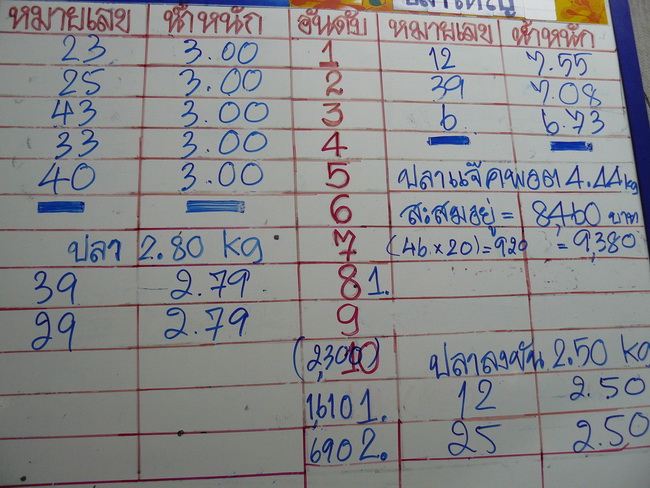 หมายเลข น้ำหนัก อันดับ หมายเลข น้ำหนัก
23 3.00 1 12 7.55
25 3.00 2 39 7.08
43 3.00 3 6 6.73
33 3.00 4
40 3.00 5 ปลาแจ๊คพอต 4.44 kg
6 สะสมอยู่ = 8,460 บาท
ปลา 2.80 kg 7 (46 × 20) = 920 = 9,380
39 2.79 8 1.
29 2.79 9
(2,300) 10 ปลาลงขัน 2.50 kg
1,610 1. 12 2.50
690 2. 25 2.50